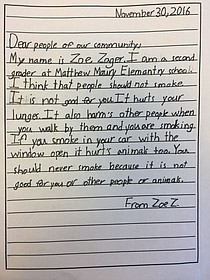 November 30, 2016
Dear people of our community,
My name is Zoe Zager. I am a second
grader at Matthew Maury Elemantry school.
I think that people should not smoke
It is not good for you It hurts your
lunges. It also harm's other people when
you walk by them and you are smoking.
If you smoke in your car with the
window open it hurt's animals too. You
should never smoke because it is not
good for you or other people or animals.
From Zoe Z.